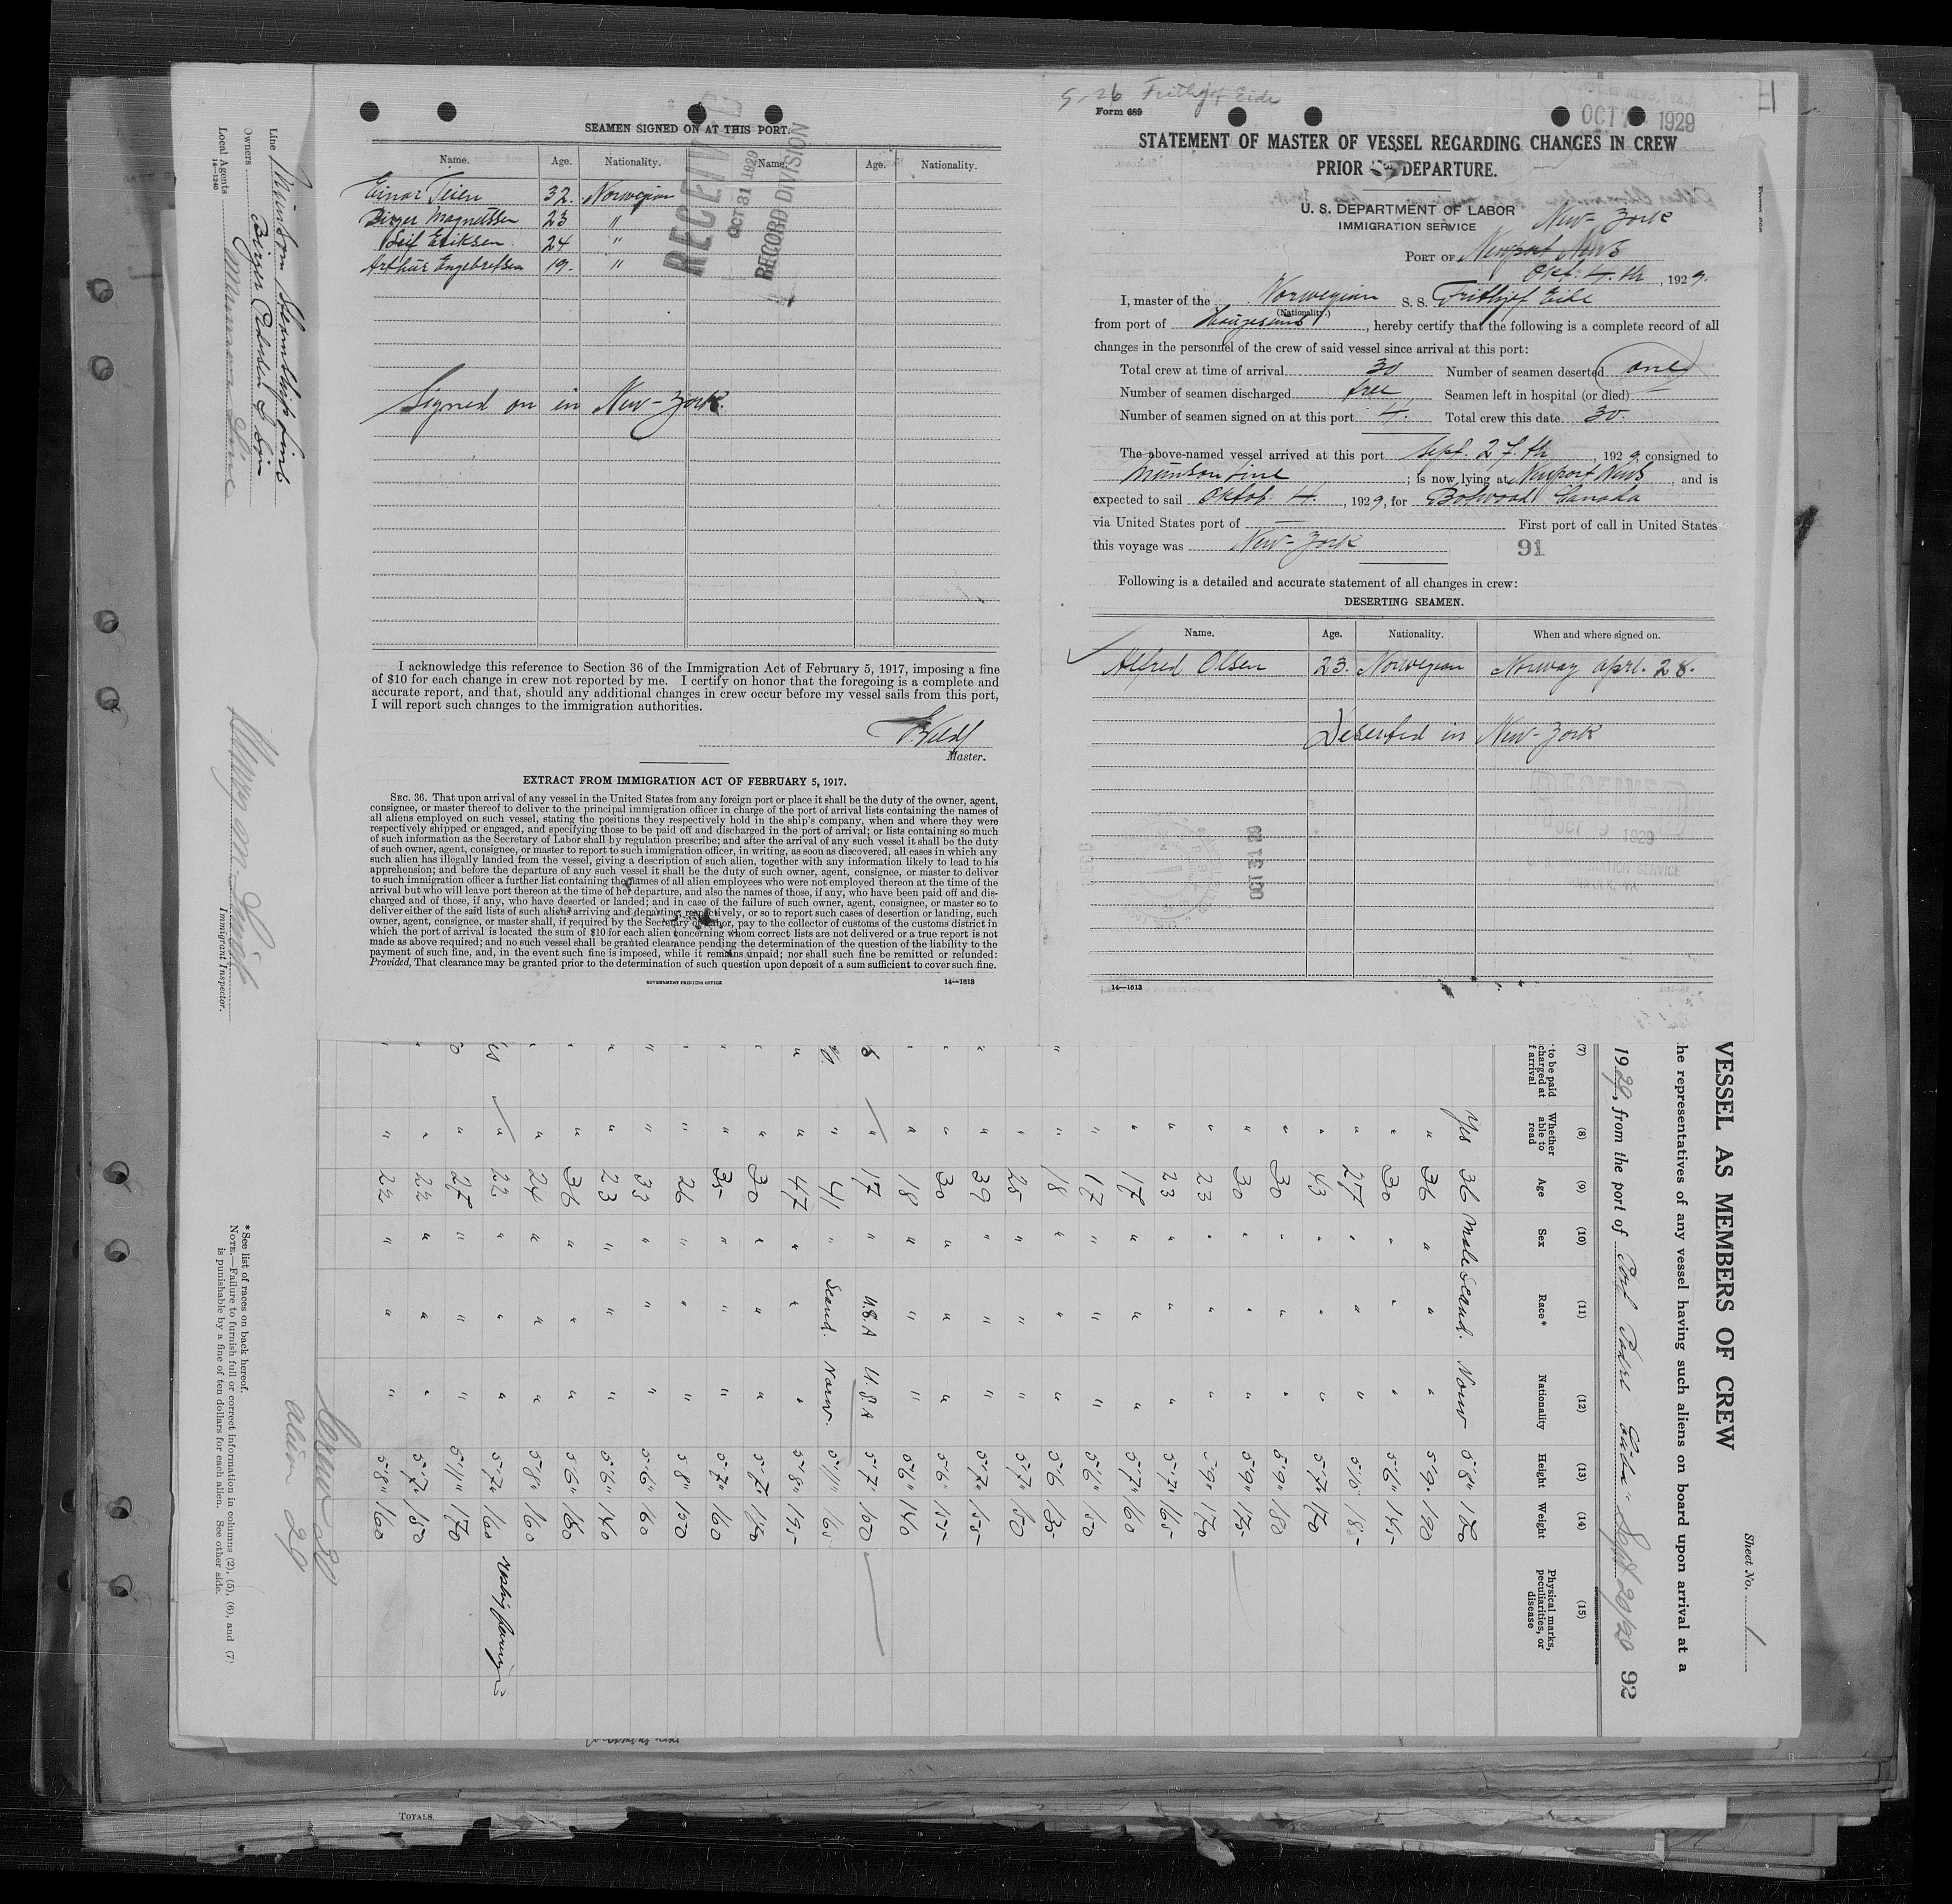 SEAMEN SIGNED ON AT THIS PORT.
Name. Age. Nationality. Name. Age. Nationality.
Einar Teien 32. Norwegian
Birger Magnussen 23 "
Leif Eriksen 24 "
Arthur Engebretsen 19. "
RECEIVED
OCT 31 1929
RECORD DIVISION
Signed on in New-York.
I acknowledge this reference to Section 36 of the Immigration Act of February 5, 1917, imposing a fine
of $10 for each change in crew not reported by me. I certify on honor that the foregoing is a complete and
accurate report, and that, should any additional changes in crew occur before my vessel sails from this port,
I will report such changes to the immigration authorities.
Master.
EXTRACT FROM IMMIGRATION ACT OF FEBRUARY 5, 1917.
SEC. 36. That upon arrival of any vessel in the United States from any foreign port or place it shall be the duty of the owner, agent,
consignee, or master thereof to deliver to the principal immigration officer in charge of the port of arrival lists containing the names of
all aliens employed on such vessel, stating the positions they respectively hold in the ship's company, when and where they were
respectively shipped or engaged, and specifying those to be paid off and discharged in the port of arrival; or lists containing so much
of such information as the Secretary of Labor shall by regulation prescribe; and after the arrival of any such vessel it shall be the duty
of such owner, agent, consignee, or master to report to such immigration officer, in writing, as soon as discovered, all cases in which any
such alien has illegally landed from the vessel, giving a description of such alien, together with any information likely to lead to his
apprehension; and before the departure of any such vessel it shall be the duty of such owner, agent, consignee, or master to deliver
to such immigration officer a further list containing the names of all alien employees who were not employed thereon at the time of the
arrival but who will leave port thereon at the time of her departure, and also the names of those, if any, who have been paid off and dis-
charged and of those, if any, who have deserted or landed; and in case of the failure of such owner, agent, consignee, or master so to
deliver either of the said lists of such aliens arriving and departing, respectively, or so to report such cases of desertion or landing, such
owner, agent, consignee, or master shall, if required by the Secretary of Labor, pay to the collector of customs of the customs district in
which the port of arrival is located the sum of $10 for each alien concerning whom correct lists are not delivered or a true report is not
made as above required; and no such vessel shall be granted clearance pending the determination of the question of the liability to the
payment of such fine, and, in the event such fine is imposed, while it remains unpaid; nor shall such fine be remitted or refunded:
Provided, That clearance may be granted prior to the determination of such question upon deposit of a sum sufficient to cover such fine.
GOVERNMENT PRINTING OFFICE 14—1613
9-26 Frithjof Eide
Form 689
OCT 1929
STATEMENT OF MASTER OF VESSEL REGARDING CHANGES IN CREW
PRIOR TO DEPARTURE.
U. S. DEPARTMENT OF LABOR
IMMIGRATION SERVICE
New-York
PORT OF Newport News
Okt. 4.th, 1929.
I, master of the Norwegian S. S. Frithjof Eide
(Nationality.)
from port of Haugesund, hereby certify that the following is a complete record of all
changes in the personnel of the crew of said vessel since arrival at this port:
Total crew at time of arrival 30 Number of seamen deserted one
Number of seamen discharged free Seamen left in hospital (or died) —
Number of seamen signed on at this port 4. Total crew this date 30
The above-named vessel arrived at this port Sept. 27.th, 1929 consigned to
Munson Line; is now lying at Newport News, and is
expected to sail Oktob. 4., 1929, for Botwood Canada
via United States port of — First port of call in United States
this voyage was New-York
91
Following is a detailed and accurate statement of all changes in crew:
DESERTING SEAMEN.
Name. Age. Nationality. When and where signed on.
Alfred Olsen 23. Norwegian Norway april. 28.
Deserted in New-York
OCT 31 29
14—1613
Line Munson Steamship Line
Owners
Local Agents Munson Line
14—1240
Immigrant Inspector.
VESSEL AS MEMBERS OF CREW
Sheet No. 1
he representatives of any vessel having such aliens on board upon arrival at a
1929, from the port of Port Padre Cuba Sept 20/29 92
(7) (8) (9) (10) (11) (12) (13) (14) (15)
to be paid
charged at
f arrival
Whether
able to
read
Age Sex Race* Nationality Height Weight
Physical marks,
peculiarities, or
disease
Yes 36 Male Scand. Norw 5'8" 180
" 36 " " " 5'9" 190
" 30 " " " 5'6" 145
" 27 " " " 5'10" 185
" 43 " " " 5'7" 170
" 30 " " " 5'9" 180
" 30 " " " 5'9" 175
" 23 " " " 5'9" 170
" 23 " " " 5'7" 165
" 17 " " " 5'7" 160
" 17 " " " 5'6" 150
" 18 " " " 5'6 135
" 25 " " " 5'7" 150
" 39 " " " 5'7" 155
" 30 " " " 5'6" 155
" 18 " " " 5'6" 140
" 17 " U.S.A U.S.A 5'7" 150
" 41 " Scand. Norw. 5'11" 165
" 47 " " " 5'8" 195
" 30 " " " 5'7" 150
" 35 " " " 5'7" 160
" 26 " " " 5'8" 150
" 33 " " " 5'6" 160
" 23 " " " 5'6" 140
" 36 " " " 5'6" 160
" 24 " " " 5'8" 160
" 22 " " " 5'7" 160
" 27 " " " 5'11" 170
" 22 " " " 5'7" 150
" 22 " " " 5'8" 160
Crew 30
alien 29
*See list of races on back hereof.
NOTE.—Failure to furnish full or correct information in columns (2), (5), (6), and (7)
is punishable by a fine of ten dollars for each alien. See other side.
TOTALS